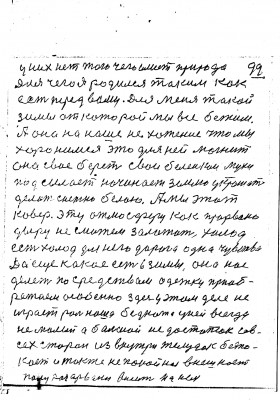 у них нет того чего имеет природа 99
для чего я родился таким как
есть перед вами. Для меня такой
зимы от которой мы все бежим.
А она на наше не хотение что мы
хоронимся это для ней могнит
она свое берет свои беленкии мухи
подсилает начинает землю украшат
делат снежно белою. А мы этот
ковер. Эту атмосферу как прорвано
дверу не сможем залотат, холод
есть холод для него дорога одна чувство
Да еще какое есть в зимы, она нас
делает по средствам одежку приоб-
ретаем особенно здесь в этом деле не
играет рол наша бедность у ней всегда
не малей а балшой не достаток сов-
сех сторон из внутри желудок беспо-
коет и также не покойна внешност